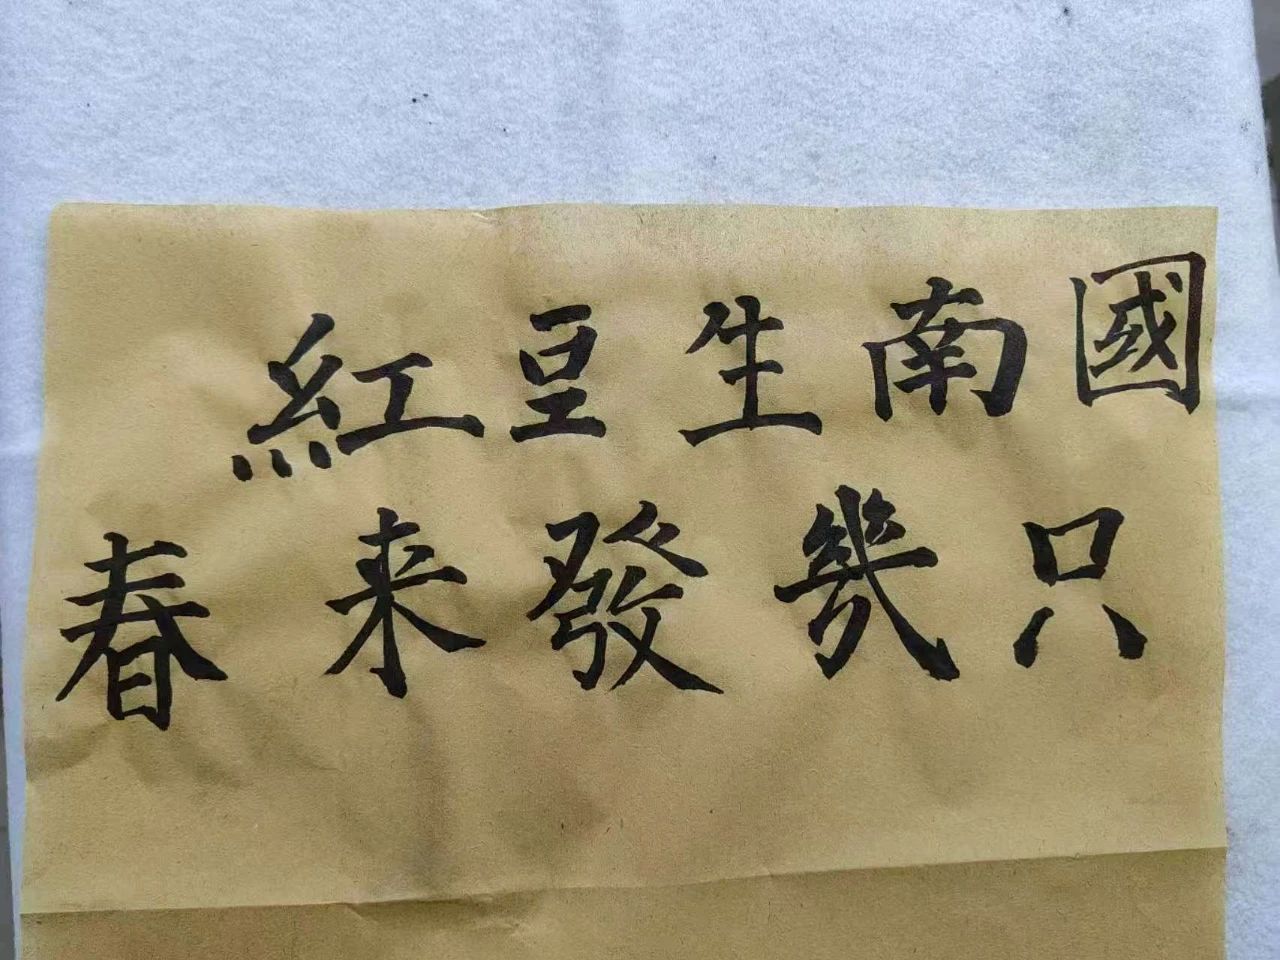 紅豆生南國
春来發幾只